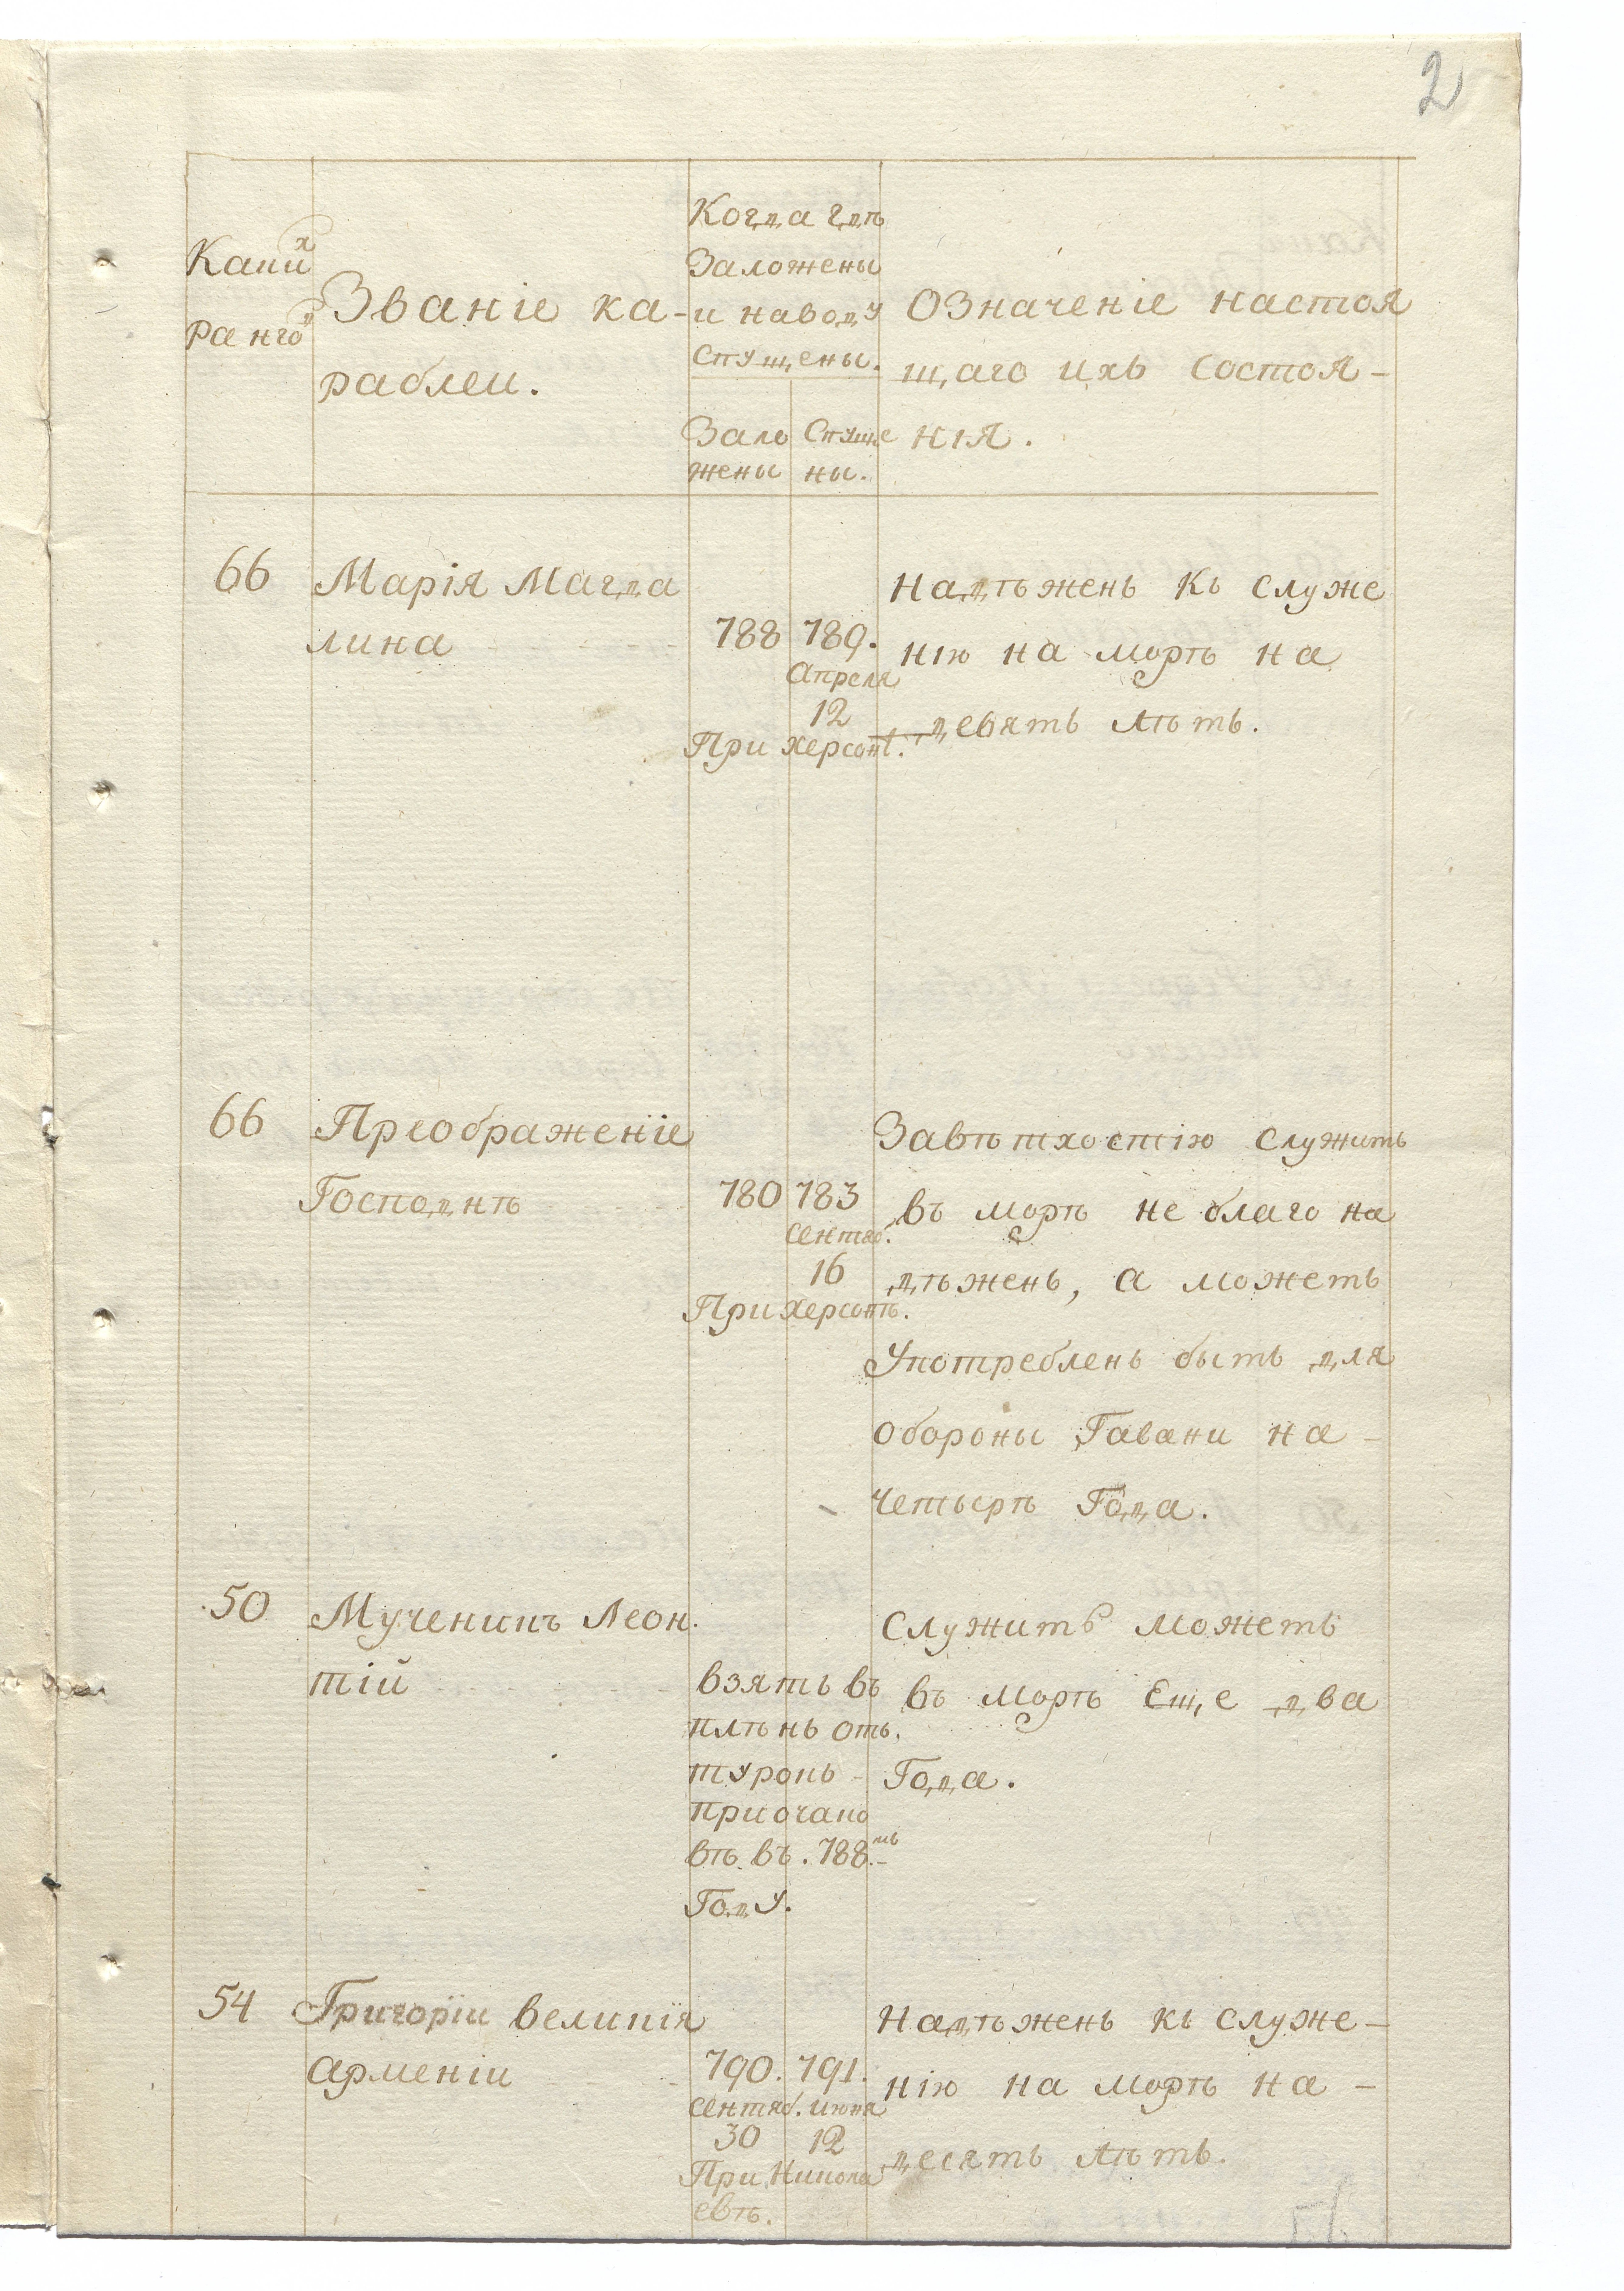 2
Какихъ
Ранговъ
Званіе ка-
раблеи.
Когда гдѣ
Заложены
и наводу
Спущены.
Зало
жены
Спуще
ны.
Означеніе настоя
щаго ихъ состоя-
нія.
66
Марія Магда
лина
788
789.
Апреля
12
При Херсонѣ.
Надѣженъ къ служе
нію на морѣ на
девять лѣтъ.
66
Преображеніе
Господнѣ
780
783
Сентяб.
16
При Херсонѣ.
Завѣтхостію служить
въ морѣ не благо на
дѣженъ, а можетъ
Употребленъ быть для
обороны Гавани на-
четырѣ Года.
50
Мученикъ Леон.
тій
взять въ
плѣнъ отъ.
турокъ-
при очако
вѣ въ. 788.мъ
Году.
Служить можетъ
въ морѣ Еще два
Года.
54
Григоріи великія
арменіи
790.
сентяб.
30
791.
июня
12
При Никола
евѣ.
Надѣженъ къ служе-
нію на морѣ на-
десять лѣтъ.